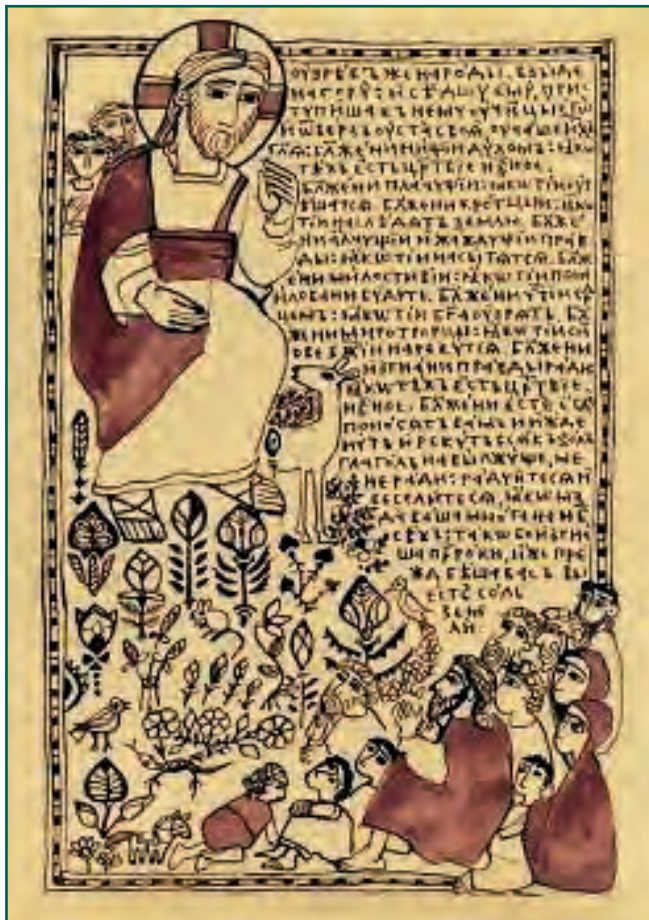 ОУЗРѢВЪ ЖЕ НАРОДЫ, ВЗЫДЕ
НА ГОРУ: И СѢДШУ ЕМУ, ПРИС
ТУПИША КЪ НЕМУ ОУЧН҃ЦЫ ЕГѠ
И ѾВЕРЗЪ ОУСТА СВОѦ, ОУЧАШЕ ИХЪ
ГЛ҃Ѧ: БЛ҃ЖЕНИ НИЩІИ ДУХОМЪ: ꙖКѠ
ТѢХЪ ЕСТЬ ЦР҃ТВІЕ НБ҃НОЕ.
БЛ҃ЖЕНИ ПЛАЧУЩІИ: ꙖКѠ ТІИ ОУТ
ѢШАТСѦ. БЛ҃ЖЕНИ КРОТЦЫИ: ꙖКѠ
ТІИ НАСЛѢДѦТЪ ЗЕМЛЮ. БЛ҃ЖЕ
НИ АЛЧУЩІИ И ЖАЖДУЩІИ ПРАВ
ДЫ: ꙖКѠ ТІИ НАСЫТѦТСѦ. БЛ҃Ж
ЕНИ МИЛОСТИВІИ: ꙖКѠ ТІИ ПОМ
ИЛОВАНИ БУДУТЪ. БЛ҃ЖЕНИ ЧТ҃ІИ СР҃
ЦЕМЪ: ꙖКѠ ТІИ БГ҃А ОУЗРѦТЪ. БЛ҃
ЖЕНИ МИРОТВОРЦЫ: ꙖКѠ ТІИ СЫ
НОВЕ БЖ҃ІИ НАРЕКУТСѦ. БЛ҃ЖЕНИ
ИЗГНАНИ ПРАВДЫ РАДИ
ꙖКѠ ТѢХЪ ЕСТЬ ЦР҃ТВІЕ.
НБ҃НОЕ. БЛ҃ЖЕНИ ЕСТЕ, ЕГДА
ПОНОСѦТЪ ВАМЪ И ИЖДЕ
НУТЪ И РЕКУТЪ ВСѦКЪ ЗОЛЪ
ГЛАГОЛЪ НА ВЫ ЛЖУЩЕ, МЕ
НЕ РАДИ: РАДУЙТЕСѦ И
ВЕСЕЛИТЕСѦ, ꙖКѠ МЗ
ДА ВАША МНОГА НА НБ҃
СѢХЪ: ТАКѠ БО ИЗГНА
ША ПР҃РОКИ, ИЖЕ ПРЕ
ЖД БѢША ВАСЪ ВЫ
ЕСТЕ СОЛЬ
ЗЕМ
ЛИ